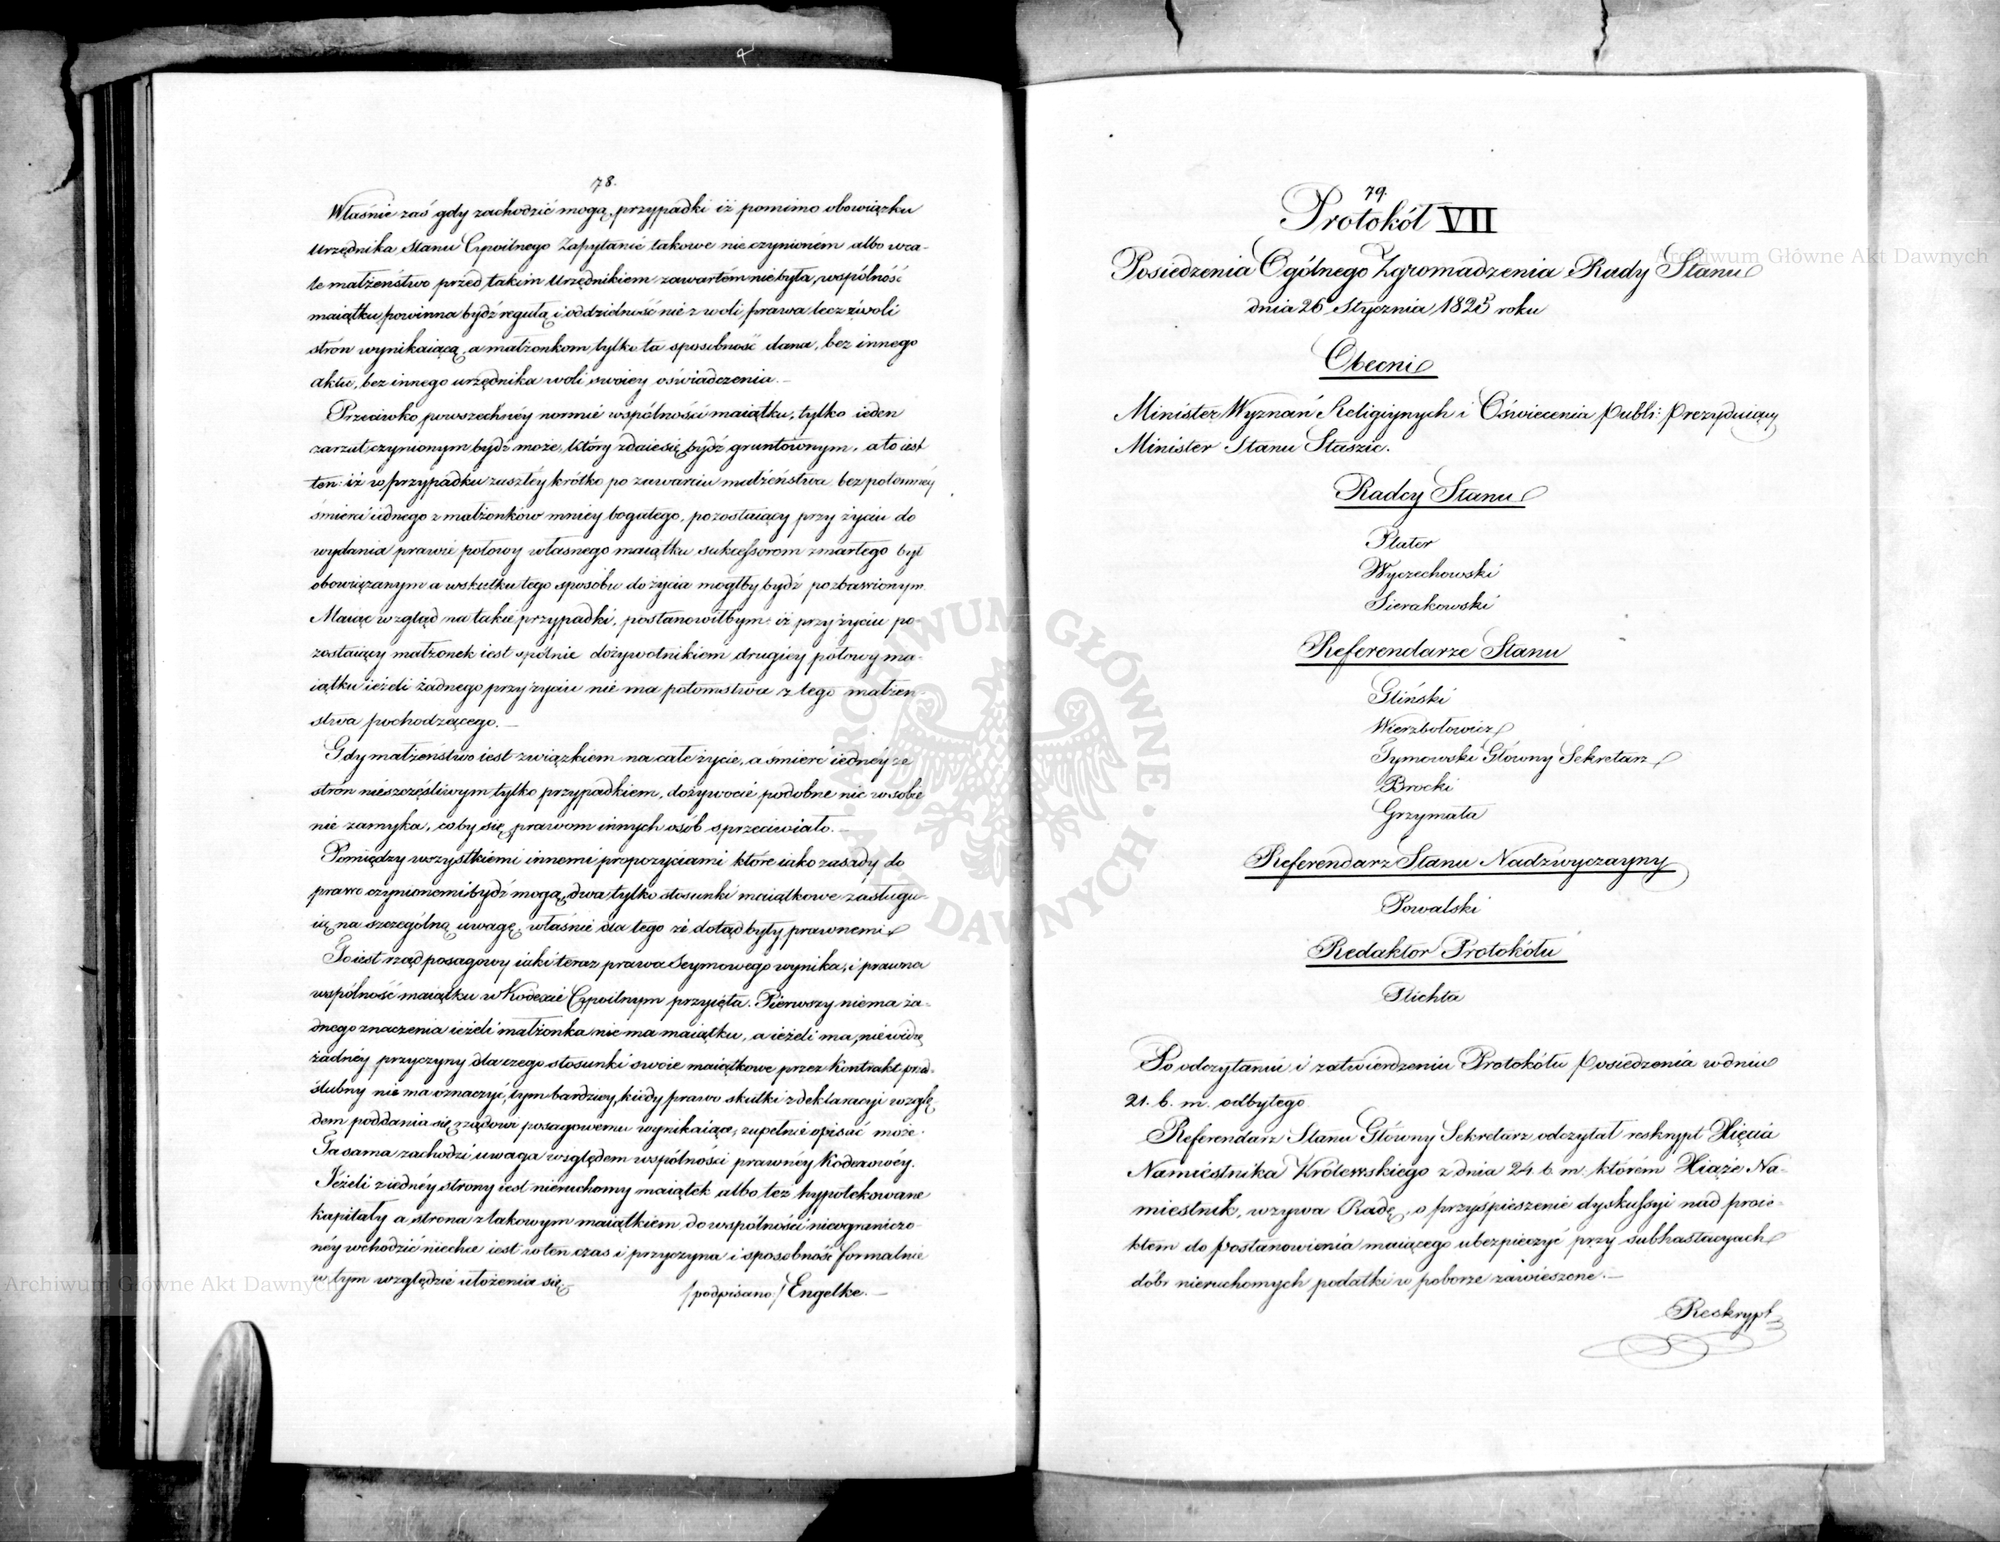 78.
Właśnie zaś gdy zachodzić mogą przypadki iż pomimo obowiązku
Urzędnika Stanu Cywilnego Zapytanie takowe nie czynioném albo wca-
le małżeństwo przed takim Urzędnikiem zawartém nie była, wspólność
maiątku powinna bydź regułą i oddzielność nie z woli prawa lecz z woli
stron wynikaiącą, a małżonkom tylko ta sposobność dana, bez innego
aktu, bez innego urzędnika woli swoiey oświadczenia. —
Przeciwko powszechnéy normie wspólności maiątku, tylko ieden
zarzut czynionym bydź może, który zdaie się bydź gruntownym, a to iest
ten: iż w przypadku zaszłéy krótko po zawarciu małżeństwa bezpotomnéy
śmierci iednego z małżonków mniey bogatego, pozostaiący przy życiu do
wydania prawie połowy własnego maiątku sukcessorom zmarłego był
obowiązanym a wskutku tego sposobu do życia mógłby bydź pozbawionym.
Maiąc wzgląd na takie przypadki, postanowiłbym: iż przy życiu po-
zostaiący małżonek iest spólnie dożywotnikiem drugiey połowy ma-
iątku ieżeli żadnego przy życiu nie ma potomstwa z tego małżeń-
stwa pochodzącego. —
Gdy małżeństwo iest związkiem na całe życie, a śmierć iednéy ze
stron nieszczęśliwym tylko przypadkiem, dożywocie podobne nic w sobie
nie zamyka, coby się prawom innych osób sprzeciwiało. —
Pomiędzy wszystkiemi innemi propozyciami które iako zasady do
praw czynionemi bydź mogą, dwa tylko stosunki maiątkowe zasługu-
ią na szczególną uwagę, właśnie dla tego że dotąd były prawnemi
To iest rząd posagowy iaki teraz prawa Seymowego wynika, i prawna
wspólność maiątku w Kodexie Cywilnym przyięta. Pierwszy niema ża-
dnego znaczenia ieżeli małżonka nie ma maiątku, a ieżeli ma, nie widzę
żadnéy przyczyny dla czego stosunki swoie maiątkowe przez Kontrakt przed-
ślubny nie ma oznaczyć, tym bardziey, kiedy prawo skutki z deklaracyi wzglę-
dem poddania się rządowi posagowemu wynikaiące, zupełnie opisać może.
Ta sama zachodzi uwaga względem wspólności prawnéy Kodexowéy.
Jeżeli z iednéy strony iest nieruchomy maiątek albo też hypotekowane
kapitały a strona z takowym maiątkiem do wspólności nieograniczo-
néy wchodzić niechce iest w ten czas i przyczyna i sposobność formalnie
w tym względzie ułożenia się.
/podpisano:/ Engelke. —
79.
Protokół VII
Posiedzenia Ogólnego Zgromadzenia Rady Stanu
dnia 26 Stycznia 1825 roku
Obecni
Minister Wyznań Religiynych i Oświecenia Publ: Prezyduiący
Minister Stanu Staszic.
Radcy Stanu
Plater
Wyczechowski
Sierakowski
Referendarze Stanu
Gliński
Wierzbołowicz
Tymowski Główny Sekretarz
Brocki
Grzymała
Referendarz Stanu Nadzwyczayny
Powalski
Redaktor Protokółu
Plichta
Po odczytaniu i zatwierdzeniu Protokółu Posiedzenia w dniu
21. b. m. odbytego
Referendarz Stanu Główny Sekretarz odczytał reskrypt Xięcia
Namiestnika Królewskiego z dnia 24 b. m. którém Xiąże Na-
miestnik, wzywa Radę, o przyśpieszenie dyskussyi nad proie-
ktem do Postanowienia maiącego ubezpieczyć przy subhastacyach
dóbr nieruchomych podatki w poborze zawieszone. —
Reskrypt
Archiwum Główne Akt Dawnych
Archiwum Główne Akt Dawnych
ARCHIWUM GŁÓWNE AKT DAWNYCH